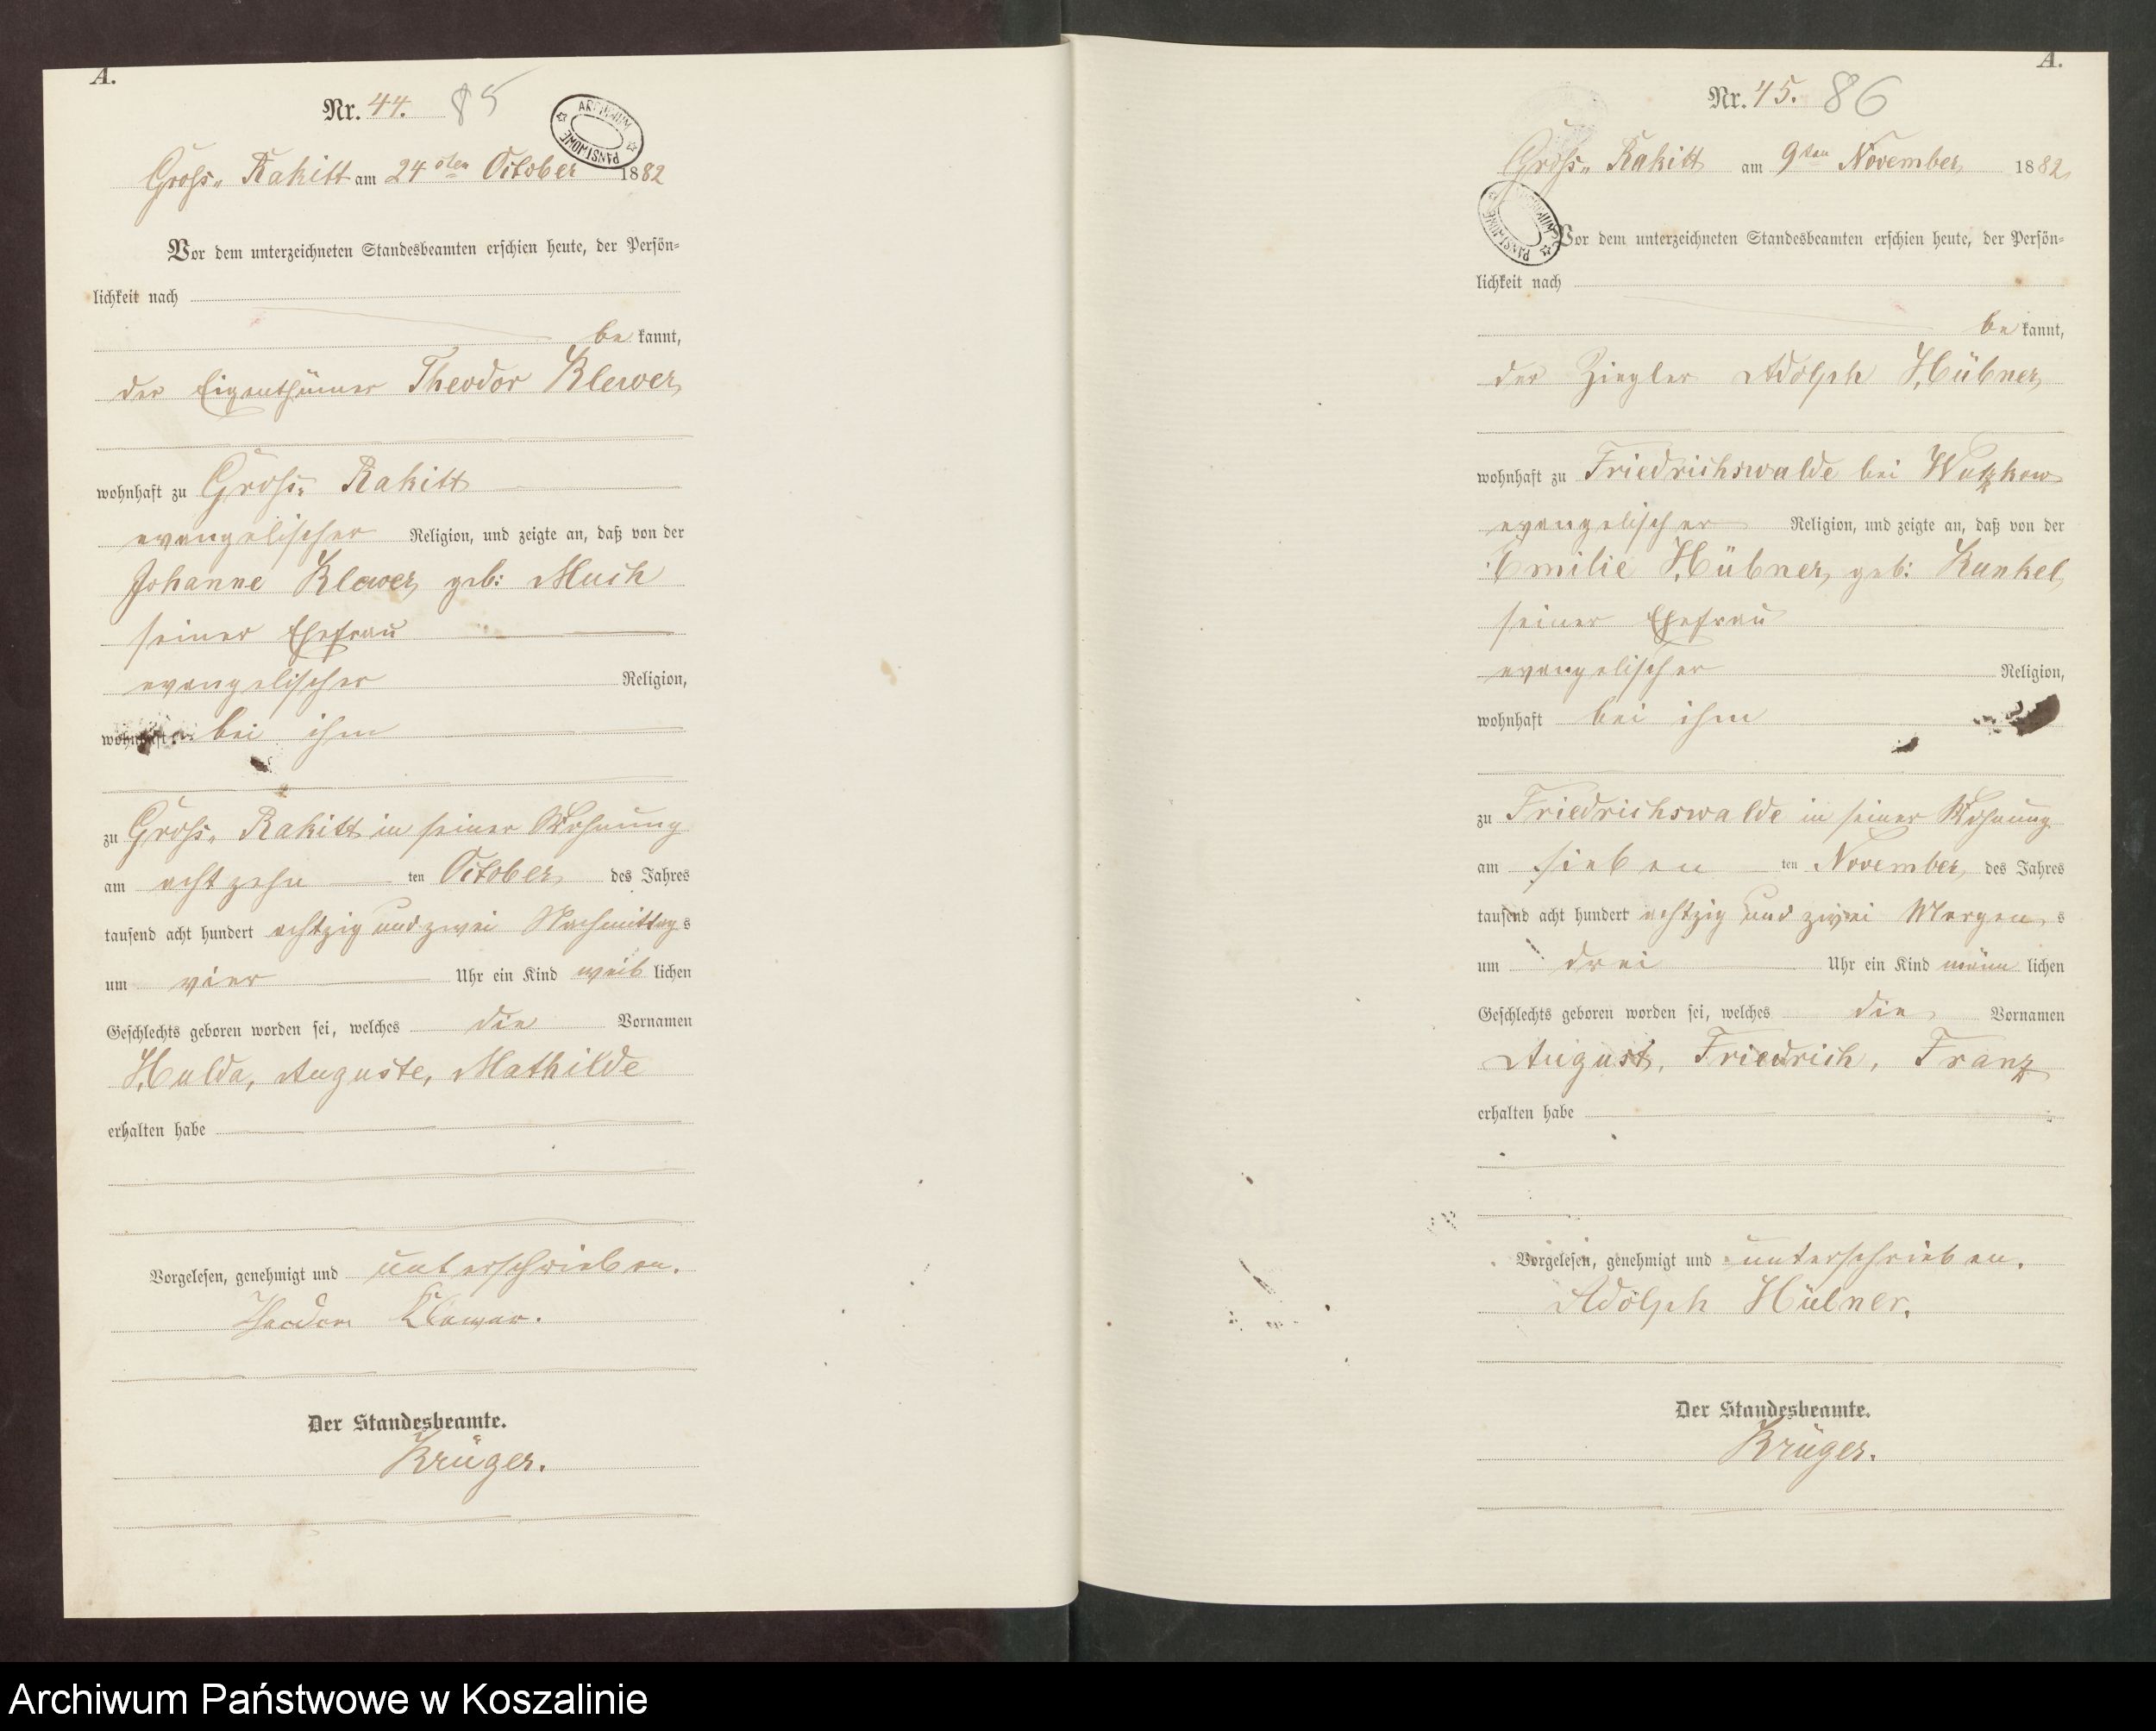 A.
Nr. 44. 85
ARCHIWUM PAŃSTWOWE
Gross„ Rakitt am 24 sten October 1882
Vor dem unterzeichneten Standesbeamten erschien heute, der Persön=
lichkeit nach
be kannt,
der Eigenthümer Theodor Klewer,
wohnhaft zu Gross„ Rakitt
evangelischer Religion, und zeigte an, daß von der
Johanne Klewer, geb: Much
seiner Ehefrau
evangelischer Religion,
wohnhaft bei ihm
zu Gross„ Rakitt in seiner Wohnung
am acht zehn ten October, des Jahres
tausend acht hundert achtzig und zwei Nachmittag s
um vier Uhr ein Kind weib lichen
Geschlechts geboren worden sei, welches die Vornamen
Hulda, Auguste, Mathilde
erhalten habe
Vorgelesen, genehmigt und unterschrieben.
Theodor Klewer.
Der Standesbeamte.
Krüger.
A.
Nr. 45. 86
Gross„ Rakitt am 9ten November, 1882,
ARCHIWUM PAŃSTWOWE
Vor dem unterzeichneten Standesbeamten erschien heute, der Persön=
lichkeit nach
be kannt,
der Ziegler Adolph Hübner,
wohnhaft zu Friedrichswalde bei Wutzkow
evangelischer Religion, und zeigte an, daß von der
Emilie Hübner, geb: Kunkel,
seiner Ehefrau
evangelischer Religion,
wohnhaft bei ihm
zu Friedrichswalde in seiner Wohnung
am sieben ten November, des Jahres
tausend acht hundert achtzig und zwei Morgen s
um drei Uhr ein Kind männ lichen
Geschlechts geboren worden sei, welches die Vornamen
August, Friedrich, Franz
erhalten habe
Vorgelesen, genehmigt und unterschrieben.
Adolph Hübner.
Der Standesbeamte.
Krüger.
Archiwum Państwowe w Koszalinie